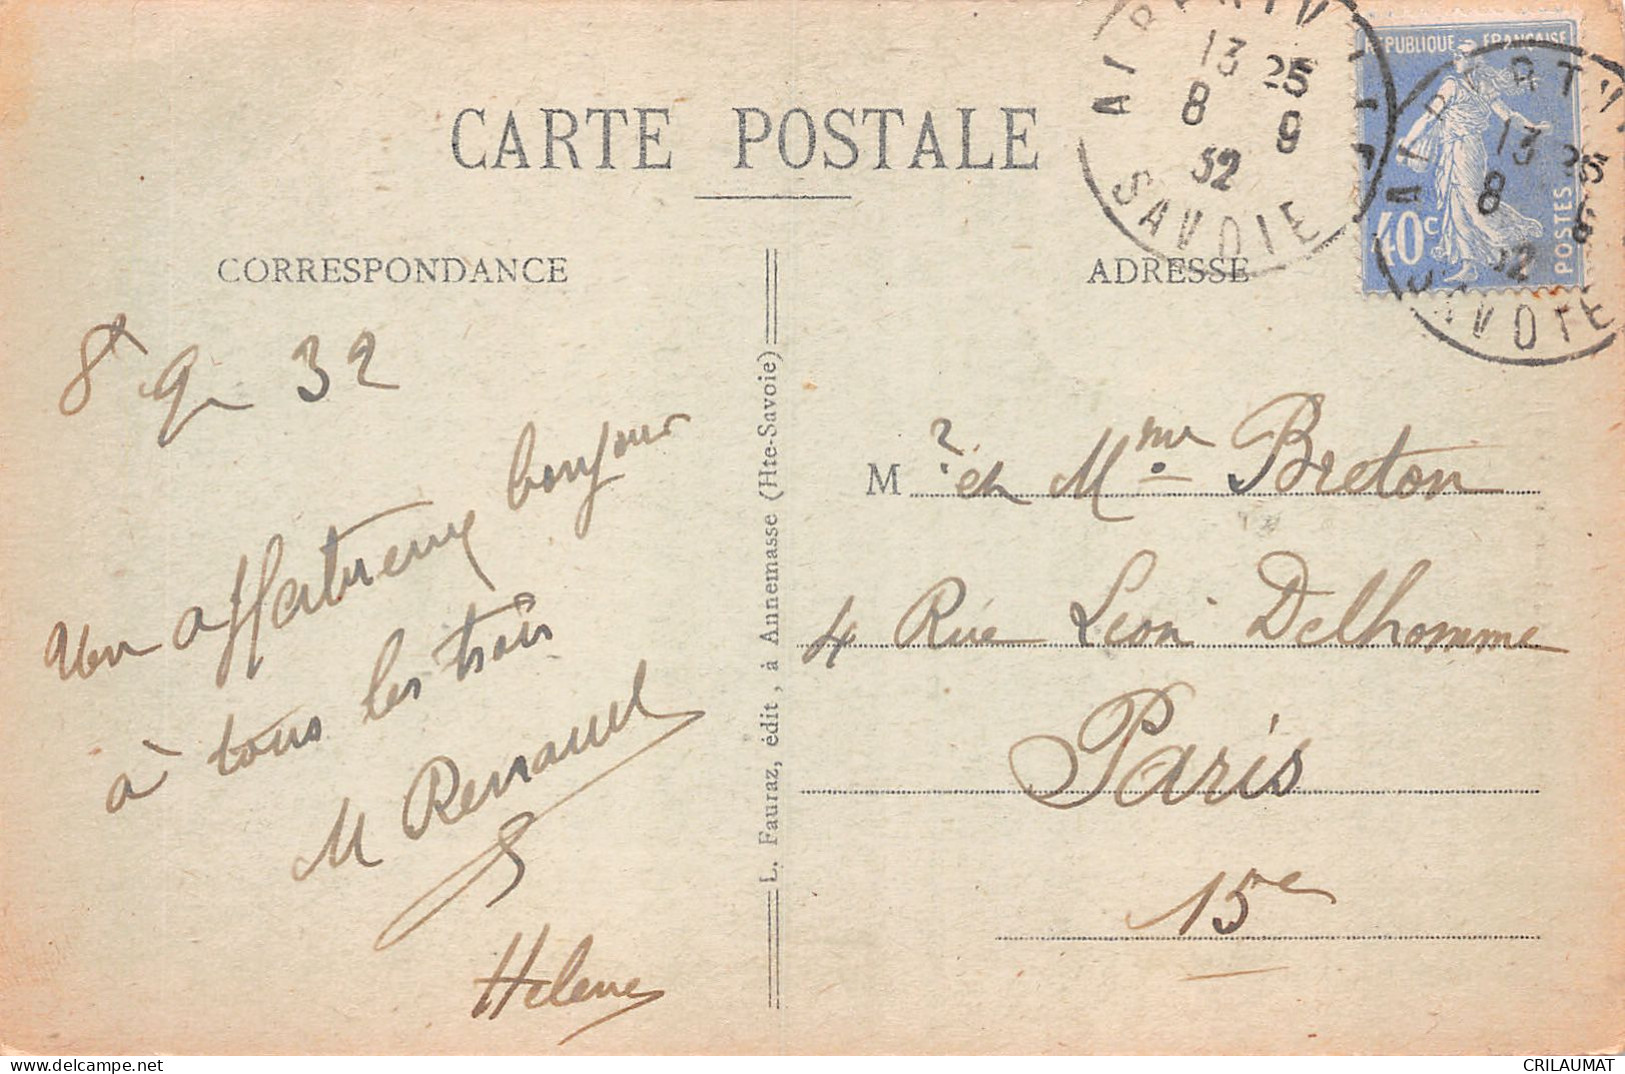 CARTE POSTALE
ALBERTVILLE
13 25
8 9
32
SAVOIE
RÉPUBLIQUE FRANÇAISE
40c
POSTES
13 25
8 9
32
SAVOIE
CORRESPONDANCE
ADRESSE
8 9 32
Un affectueux bonjour
à tous les trois
M Renaud
Helene
L. Fauraz, édit, à Annemasse (Hte-Savoie)
M r et Mme Breton
4 Rue Léon Delhomme
Paris
15e
delcampe.net
CRILAUMAT